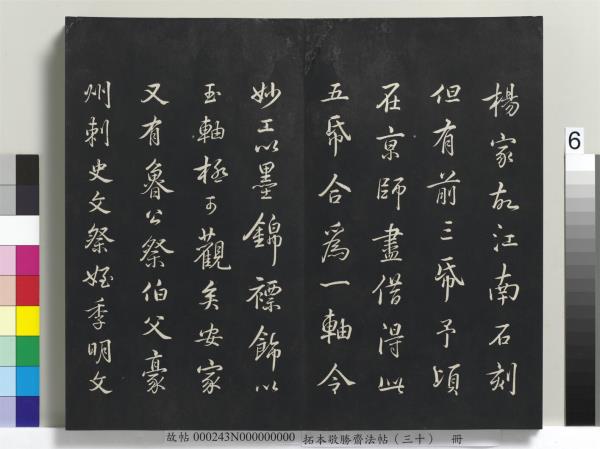 楊家故江南石刻
但有前三㡧予頃
在京師盡借得此
五㡧合爲一軸令
妙工以墨錦褾飾以
玉軸極可觀矣安家
又有魯公祭伯父豪
州刺史文祭姪季明文
6
故帖 000243N000000000 拓本敬勝齋法帖（三十） 冊